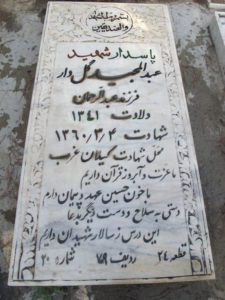 پاسدار شهید
عبدالمجید گل دار
فرزند عبدالرحمان
ولادت ۱۳۴۱
شهادت ۱۳۶۰/۳/۴
محل شهادت گیلان غرب
ما عزت و آبرو ز قرآن داریم
با خون حسین عهد و پیمان داریم
دستی به سلاح و دست دیگر بدعا
این درس ز سالار شهیدان داریم
قطعه ۲۴ ردیف ۷۹ شماره ۲۰